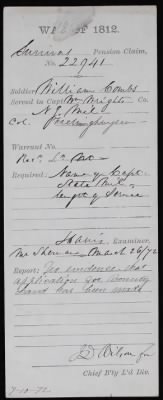 WAR OF 1812.
Survivors Pension Claim,
No. 22941
Soldier William Combs
Served in Capt Wm Wright's Co.
N.J. Mil
Col. Frelinghuysen
Warrant No.
Required: Name of Capt.
State Mil &
length of Service
Examiner,
March 26/72
Report: No evidence that
application for bounty
Land has been made
J D Wilson Jr
Chief B'ty L'd Div.
7-10-72